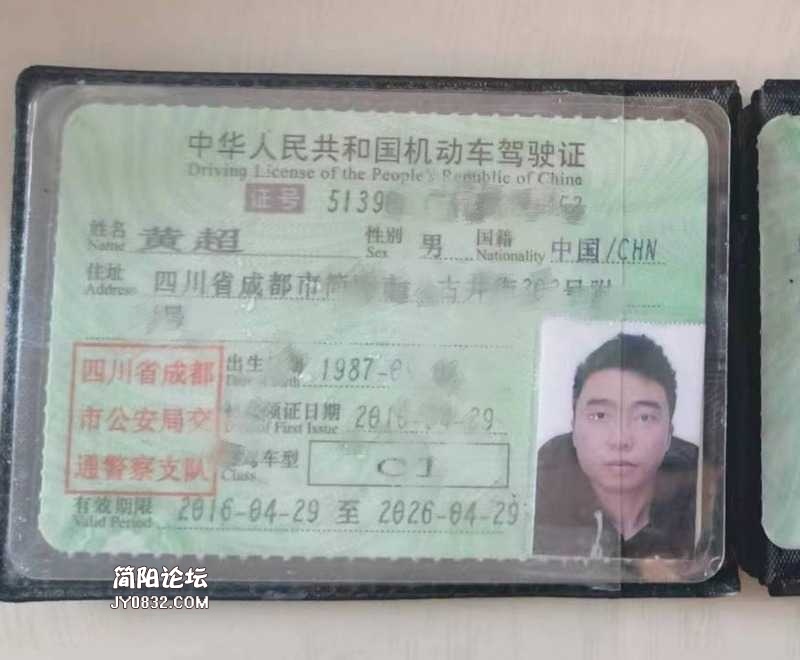 中华人民共和国机动车驾驶证
Driving License of the People's Republic of China
证号 5139
姓名 黄超 性别 男 国籍 中国/CHN
Name Sex Nationality
住址 四川省成都市
Address
号
四川省成都
市公安局交
通警察支队
出生 1987-0
领证日期 2016-04-29
of First Issue
车型 C1
Class
有效期限 2016-04-29 至 2026-04-29
Valid Period
简阳论坛
JY0832.COM